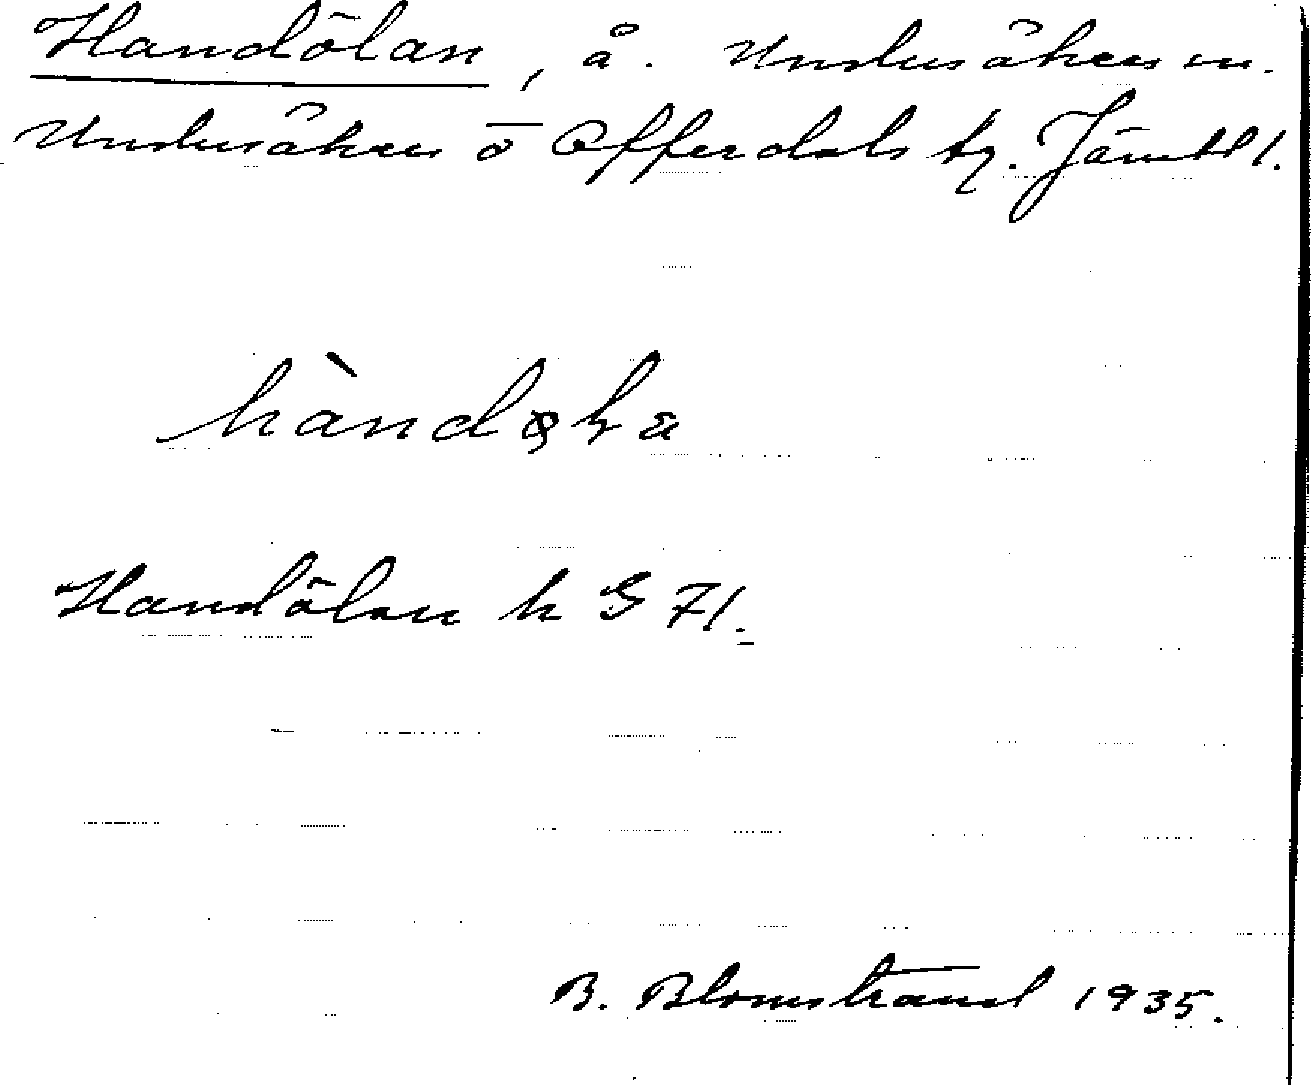 Handölan, å. Undersåkers sn.
Undersåkers o Offerdals tg. Jämtl l.
Handölan k G 71.
B. Blomstrand 1935.